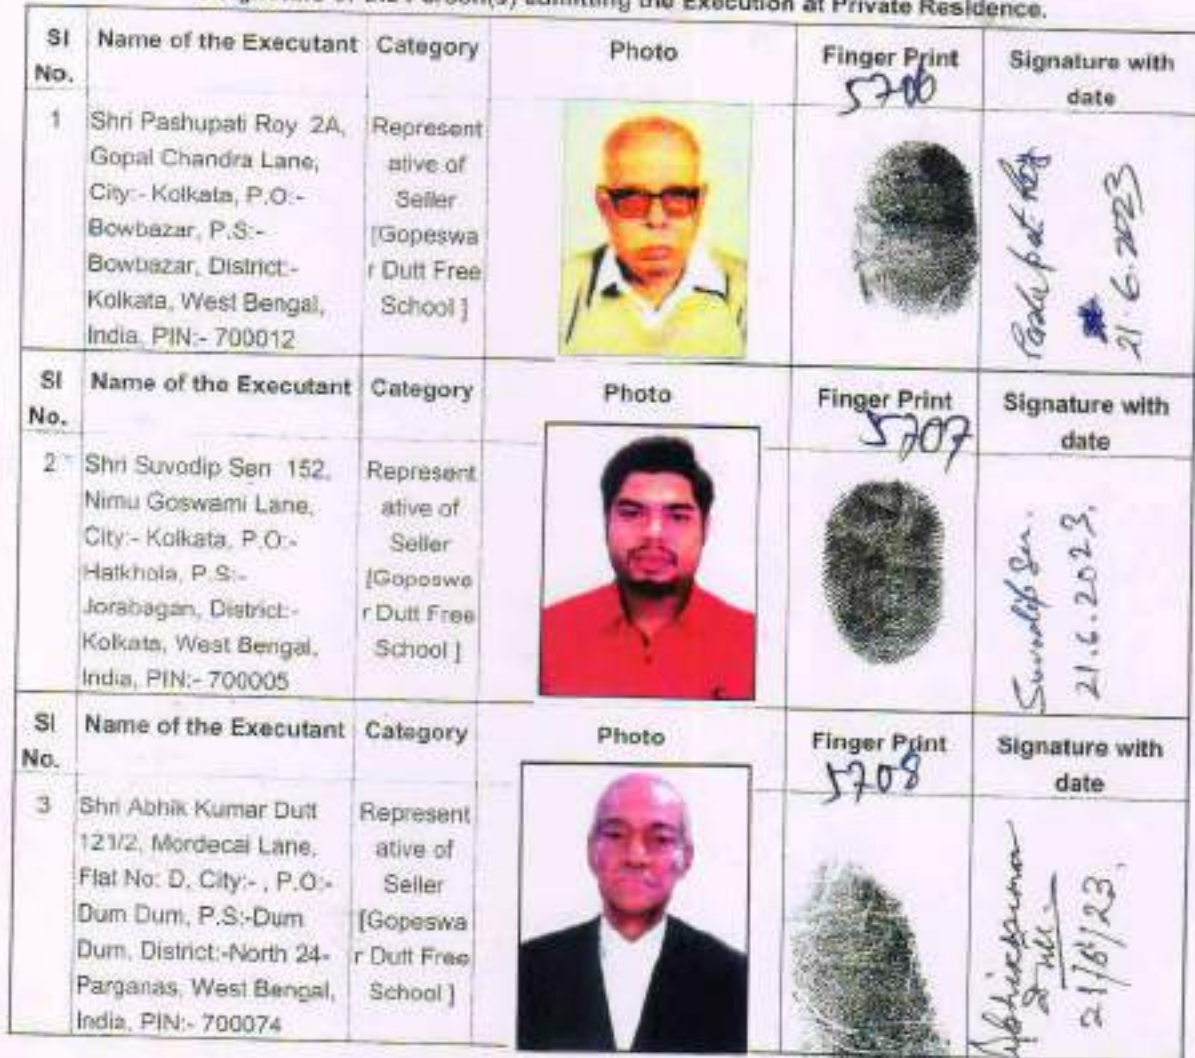 Person(s) admitting the Execution at Private Residence.
Sl No. Name of the Executant Category Photo Finger Print Signature with date
5706
1 Shri Pashupati Roy 2A,
Gopal Chandra Lane,
City:- Kolkata, P.O:-
Bowbazar, P.S:-
Bowbazar, District:-
Kolkata, West Bengal,
India, PIN:- 700012
Represent
ative of
Seller
[Gopeswa
r Dutt Free
School ]
21.6.2023
Sl No. Name of the Executant Category Photo Finger Print Signature with date
5707
2 Shri Suvodip Sen 152,
Nimu Goswami Lane,
City:- Kolkata, P.O:-
Hatkhola, P.S:-
Jorabagan, District:-
Kolkata, West Bengal,
India, PIN:- 700005
Represent
ative of
Seller
[Gopeswa
r Dutt Free
School ]
Suvodip Sen.
21.6.2023.
Sl No. Name of the Executant Category Photo Finger Print Signature with date
5708
3 Shri Abhik Kumar Dutt
121/2, Mordecai Lane,
Flat No: D, City:- , P.O:-
Dum Dum, P.S:-Dum
Dum, District:-North 24-
Parganas, West Bengal,
India, PIN:- 700074
Represent
ative of
Seller
[Gopeswa
r Dutt Free
School ]
21/6/23.